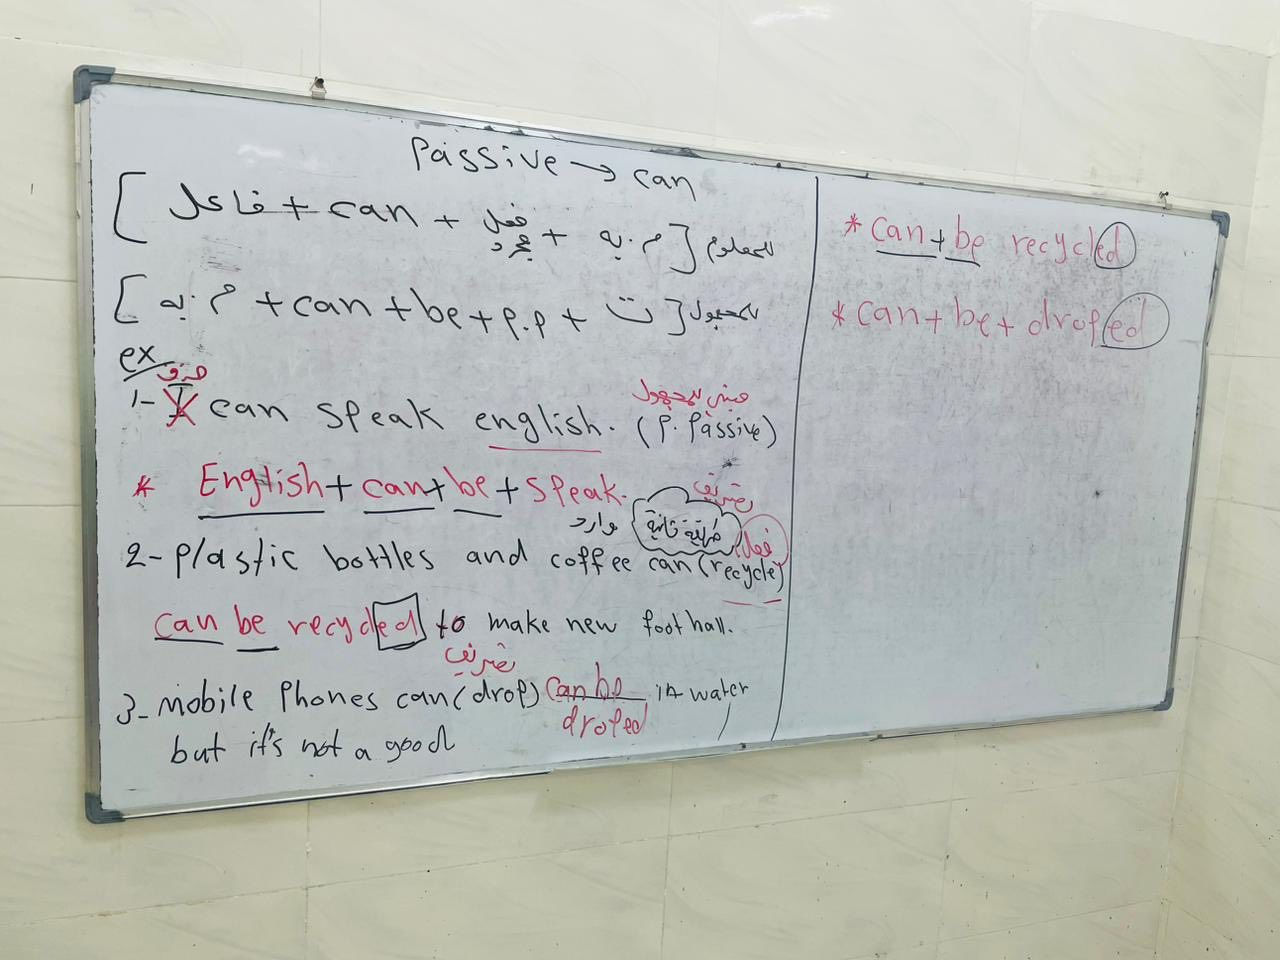 Passive → can
[ فاعل + can + فعل مجرد + م.به ] للمعلوم
[ م.به + can + be + p.p + ت ] للمجهول
ex
حذف
1- I can speak english. (p. passive)
مبني للمجهول
* English + can + be + speak.
تصريف
وارد
طريقة ثانية
فعل
2- plastic bottles and coffee can (recycle)
can be recycled to make new foot hall.
تصريف
3- mobile phones can (drop) can be droped in water
but it's not a good
* can + be recycled
* can + be + droped